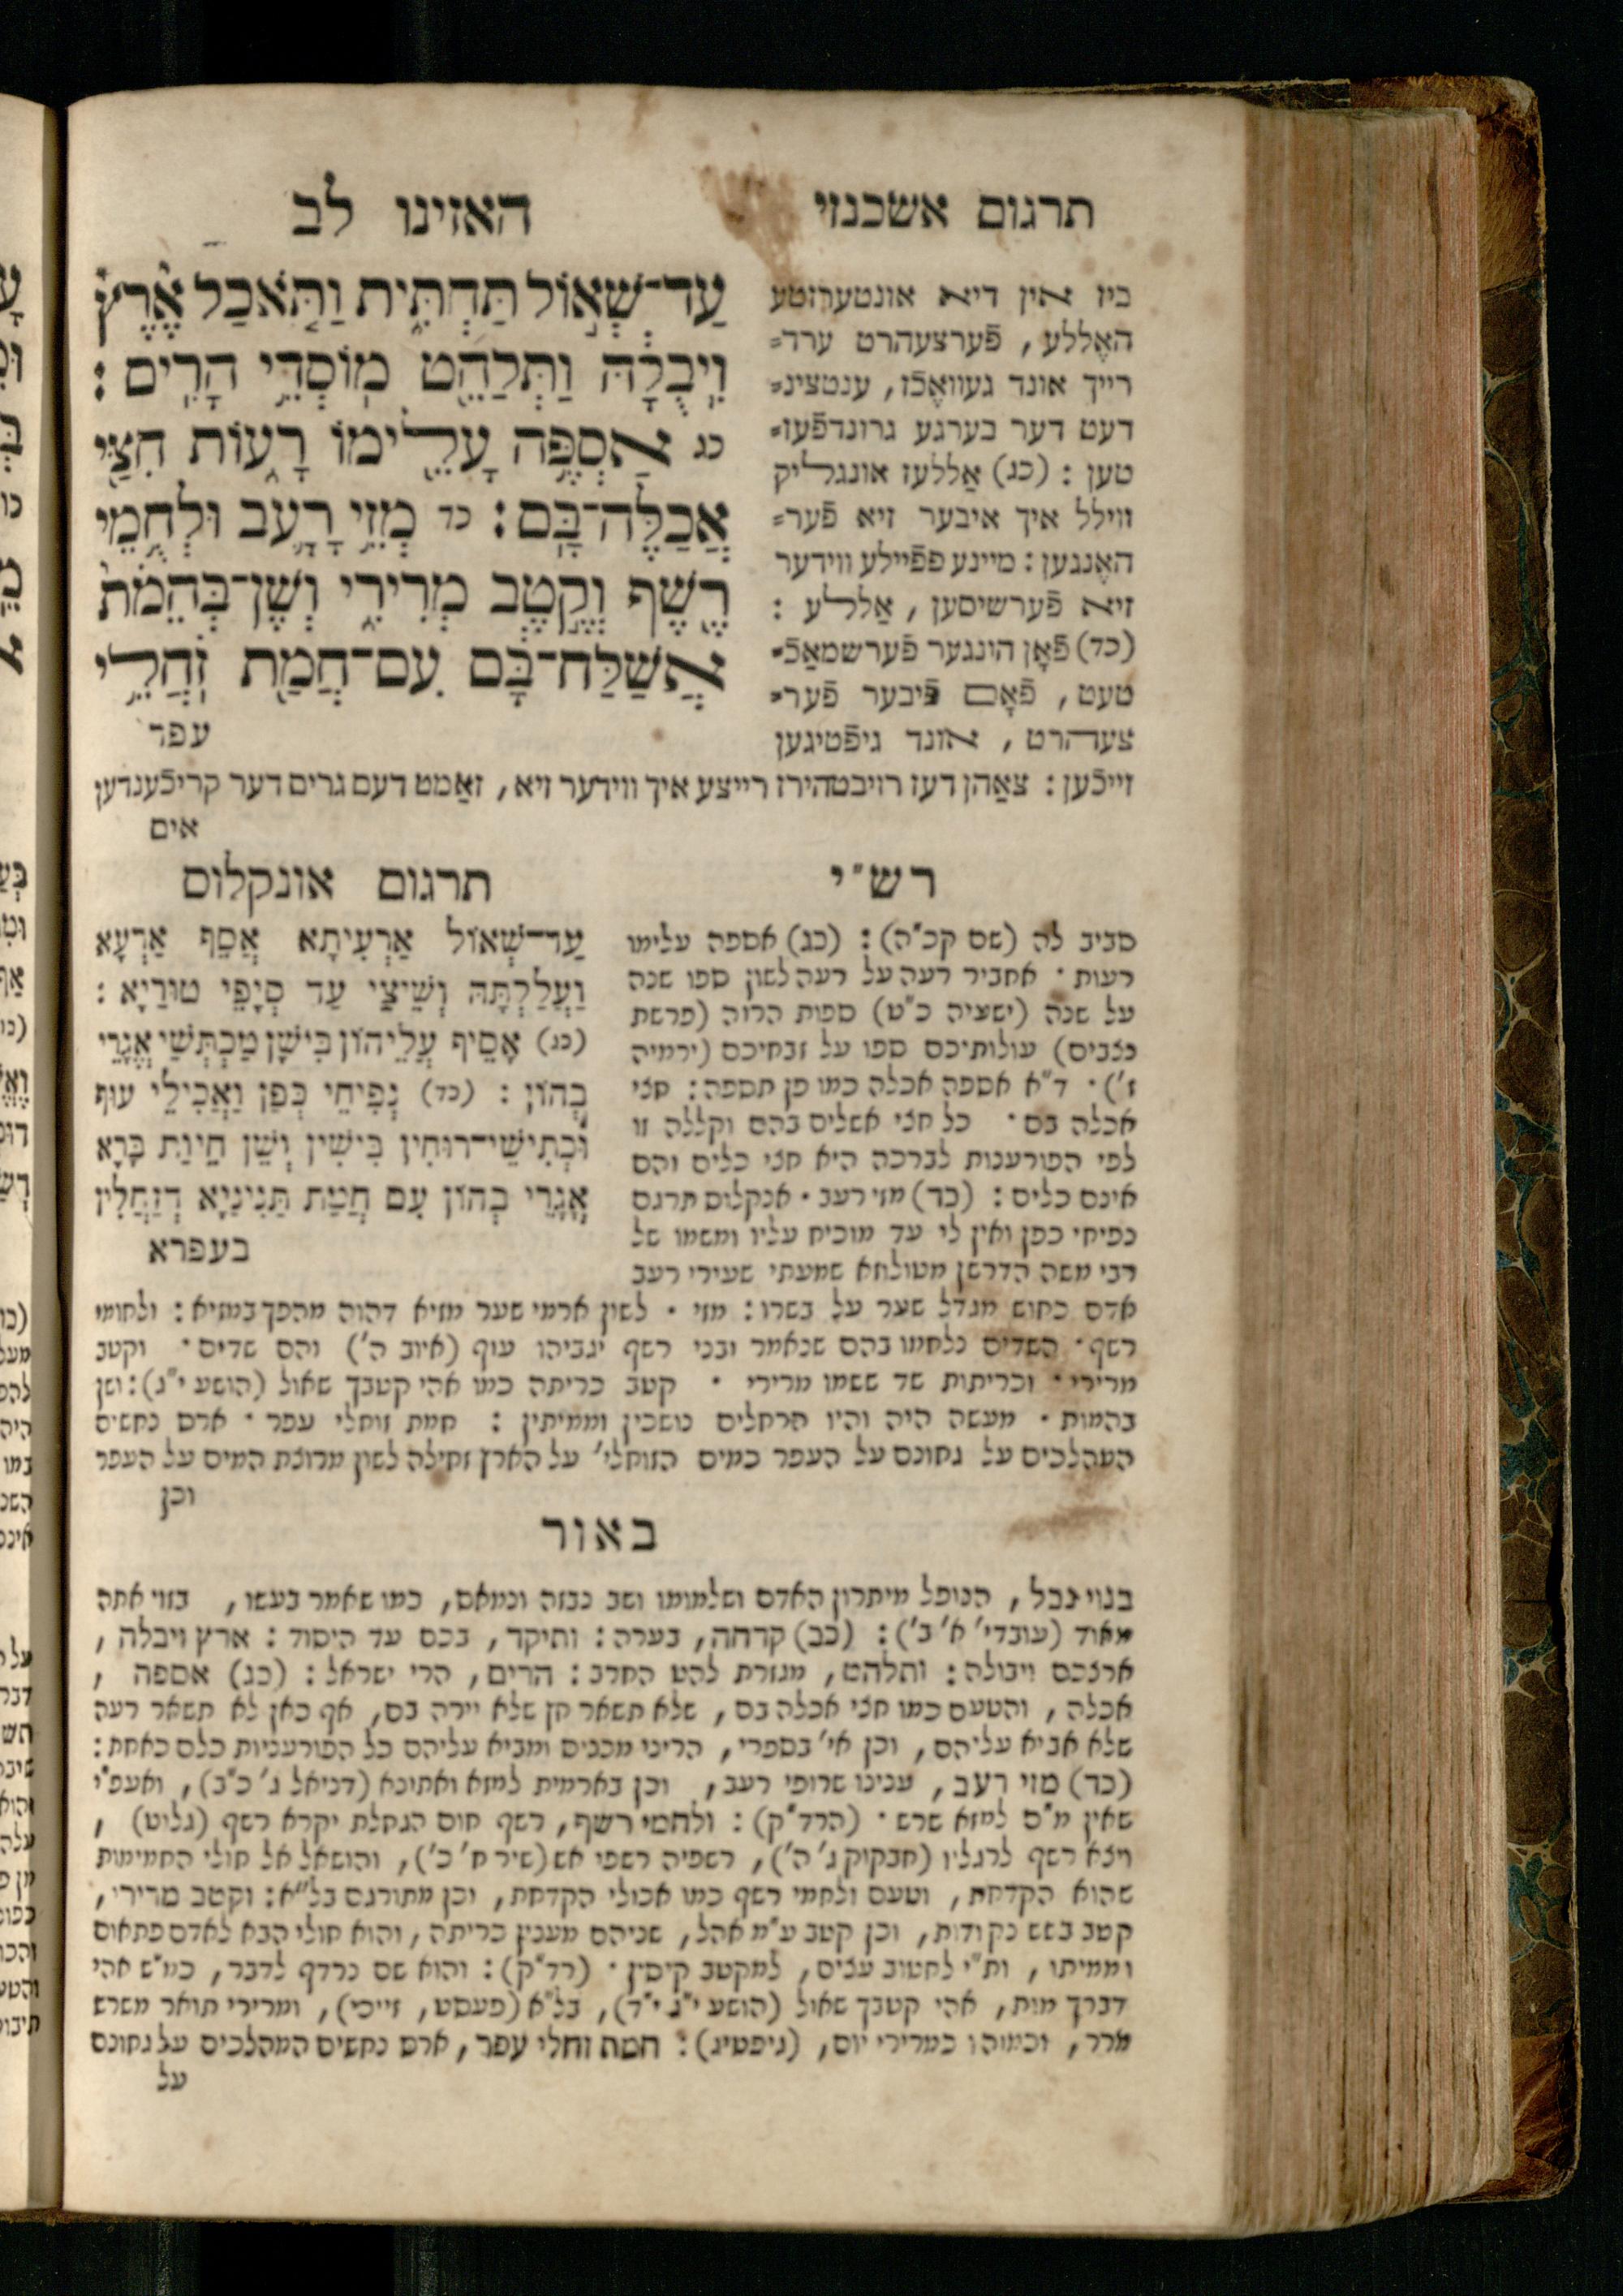 תרגום אשכנזי
האזינו לב
עַד־שְׁא֣וֹל תַּחְתִּ֑ית וַתֹּ֤אכַל אֶ֙רֶץ֙
וִֽיבֻלָ֔הּ וַתְּלַהֵ֖ט מֽוֹסְדֵ֥י הָרִֽים :
כג אַסְפֶּ֥ה עָלֵ֖ימוֹ רָע֑וֹת חִצַּ֖י
אֲכַלֶּה־בָּֽם : כד מְזֵ֥י רָעָ֛ב וּלְחֻ֥מֵי
רֶ֖שֶׁף וְקֶ֣טֶב מְרִירִ֑י וְשֶׁן־בְּהֵמֹת֙
אֲשַׁלַּח־בָּ֔ם עִם־חֲמַ֖ת זֹֽחֲלֵ֥י
עפר
ביז אין דיא אונטערזטע
האֶללע, פֿערצעהרט ערד=
רייך אונד געוואֶכֿז, ענטצינ=
דעט דער בערגע גרונדפֿעז=
טען : (כג) אַללעז אונגליק
ווילל איך איבער זיא פֿער=
האֶנגען : מיינע פפֿיילע ווידער
זיא פֿערשיסען, אַללע :
(כד) פֿאָן הונגער פֿערשמאַכֿ=
טעט, פֿאָם פֿיבער פֿער=
צעהרט, אונד גיפֿטיגען
זייכֿען : צאַהן דעז רויבטהירז רייצע איך ווידער זיא, זאַמט דעם גרים דער קריכֿענדען
אים
רש״י
סביב לה (שם קכ״ה) : (כג) אספה עלימו
רעות · אחביר רעה על רעה לשון ספו שנה
על שנה (ישעיה כ״ט) ספות הרוה (פרשת
נצבים) עולותיכם ספו על זבחיכם (ירמיה
ז׳) · ד״א אספה אכלה כמו פן תספה : חצי
אכלה בם · כל חצי אשלים בהם וקללה זו
לפי הפורענות לברכה היא חצי כלים והם
אינם כלים : (כד) מזי רעב · אנקלוס תרגם
נפיחי כפן ואין לי עד מוכיח עליו ומשמו של
רבי משה הדרשן מטולוזא שמעתי שעירי רעב
אדם כחוש מגדל שער על בשרו : מזי · לשון ארמי שער מזיא דהוה מהפך במזיא : ולחומי
רשף · השדים נלחמו בהם שנאמר ובני רשף יגביהו עוף (איוב ה׳) והם שדים · וקטב
מרירי · וכריתות שד ששמו מרירי · קטב כריתה כמו אהי קטבך שאול (הושע י״ג) : ושן
בהמות · מעשה היה והיו הרחלים נושכין וממיתין : חמת זוחלי עפר · ארס נחשים
המהלכים על גחונם על העפר כמים הזוחלי׳ על הארץ זחילה לשון מרוצת המים על העפר
וכן
תרגום אונקלוס
עַד־שְׁאוֹל אַרְעִיתָא אֲסֵף אַרְעָא
וַעֲלַלְתָּהּ וְשֵׁיצֵי עַד סְיָפֵי טוּרַיָא :
(כג) אָסֵיף עֲלֵיהוֹן בִּישָׁן מַכְתְּשַׁי אֱגָרֵי
בְהוֹן : (כד) נְפִיחֵי כְּפַן וַאֲכִילֵי עוּף
וּכְתִישֵׁי־רוּחִין בִּישִׁין וְשֵׁן חֵיוַת בָּרָא
אֱגָרֵי בְהוֹן עִם חֲמַת תַּנִינַיָא דְזַחֲלִין
בעפרא
באור
בגוי נבל, הנופל מיתרון האדם ושלמומו ושב נבזה ונמאס, כמו שאמר בעשו, בזוי אתה
מאוד (עובדי׳ א׳ ב׳) : (כב) קדחה, בערה : ותיקד, בכם עד היסוד : ארץ ויבלה,
ארצכם ויבולה : ותלהט, מגזרת להט החרב : הרים, הרי ישראל : (כג) אספה,
אכלה, והטעם כמו חצי אכלה בם, שלא תשאר חץ שלא יירה בם, אף כאן לא תשאר רעה
שלא אביא עליהם, וכן אי׳ בספרי, הריני מכניס ומביא עליהם כל הפורעניות כלם כאחת :
(כד) מזי רעב, ענינו שרופי רעב, וכן בארמית למזא ואתונא (דניאל ג׳ כ״ב), ואעפ״י
שאין מ״ם למזא שרש · (הרד״ק) : ולחמי רשף, רשף חום הגחלת יקרא רשף (גלוט),
ויצא רשף לרגליו (חבקוק ג׳ ה׳), רשפיה רשפי אש (שיר ח׳ ב׳), והושאל אל חולי החמימות
שהוא הקדחת, וטעם ולחמי רשף כמו אכולי הקדחת, וכן מתורגם בל״א : וקטב מרירי,
קטב בשש נקודות, וכן קטב ע״מ אהל, שניהם מענין כריתה, והוא חולי הבא לאדם פתאום
וממיתו, ות״י לחטוב עצים, למקטב קיסין · (רד״ק) : והוא שם נרדף לדבר, כמ״ש אהי
דבריך מות, אהי קטבך שאול (הושע י״ג י״ד), בל״א (פעסט, זייכי), ומרירי תואר משרש
מרר, וכמוהו כמרירי יום, (גיפטיג) : חמת זחלי עפר, ארס נחשים המהלכים על גחונם
על